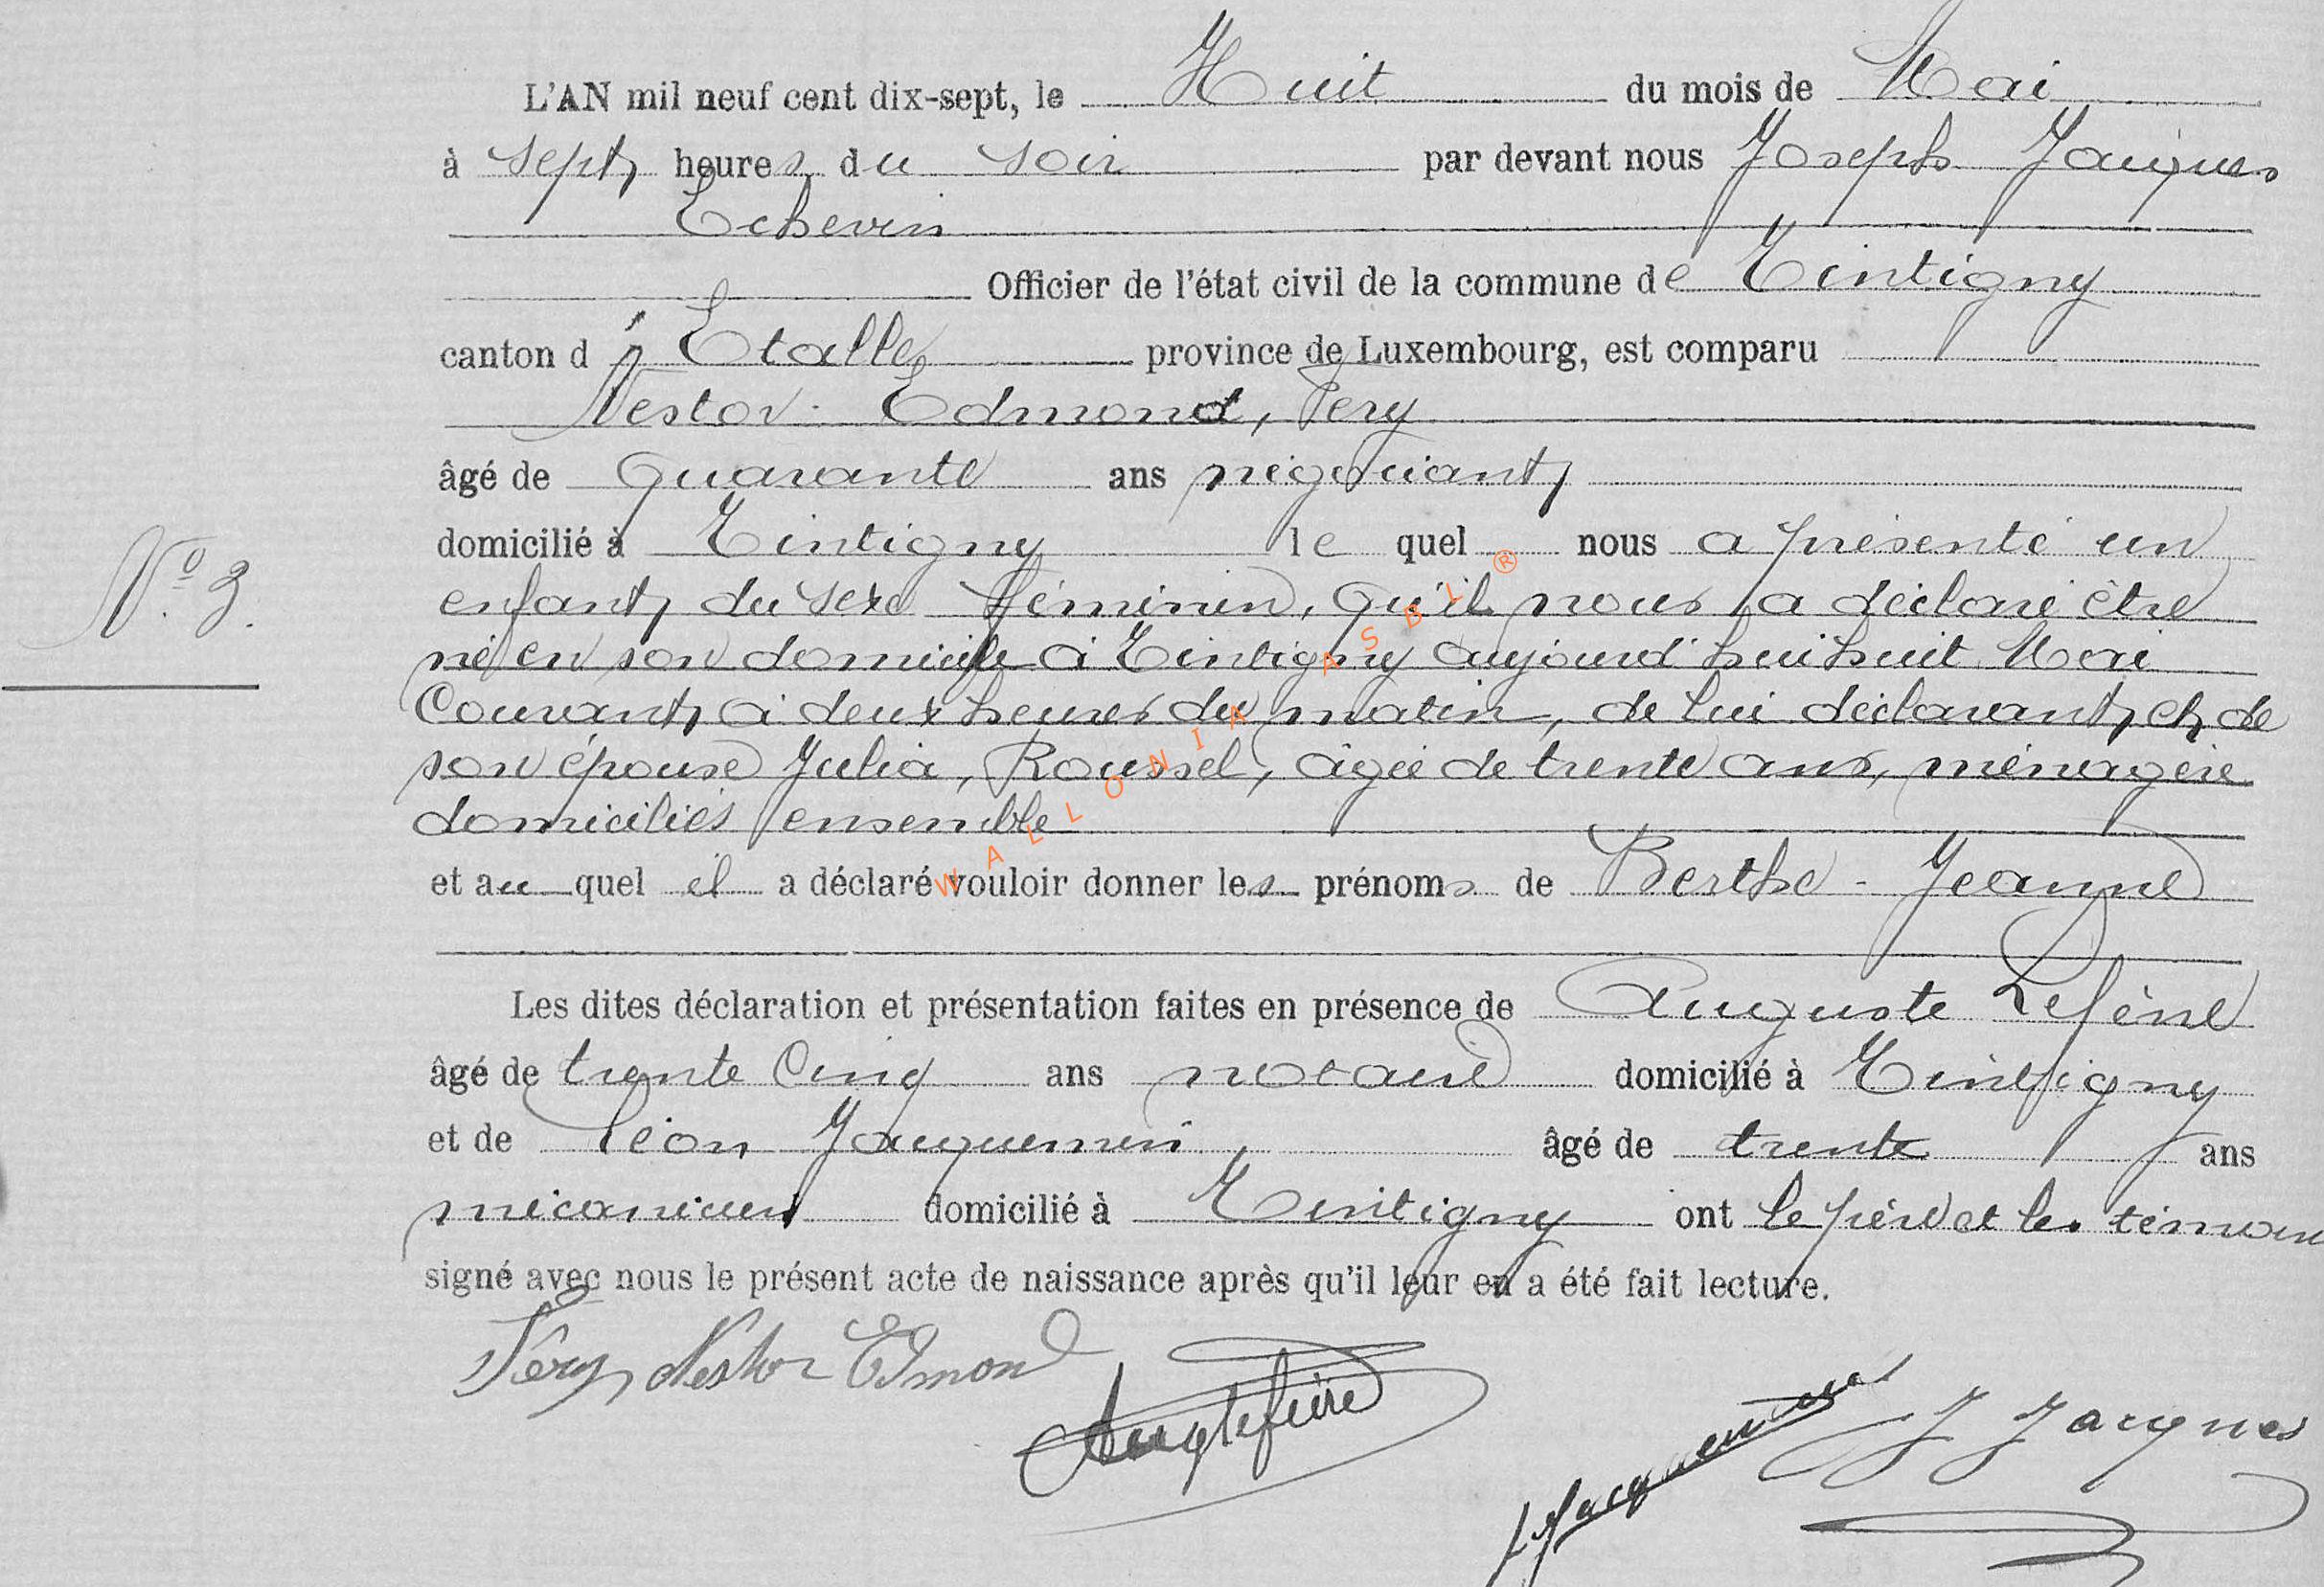 L'AN mil neuf cent dix-sept, le Huit du mois de Mai
à sept heures du soir par devant nous Joseph Jacques
Echevin
Officier de l'état civil de la commune de Tintigny
canton d'Etalle province de Luxembourg, est comparu
Nestor Edmond, Féry
âgé de quarante ans négociant
domicilié à Tintigny lequel nous a présenté un
N° 3.
enfant du sexe féminin, qu'il nous a déclaré être
né en son domicile à Tintigny aujourd'hui huit Mai
Courant à deux heures du matin, de lui déclarant et de
son épouse Julia, Roussel, âgée de trente ans, ménagère
domiciliés ensemble
et auquel il a déclaré vouloir donner les prénoms de Berthe - Jeanne
Les dites déclaration et présentation faites en présence de Auguste Lefère
âgé de trente Cinq ans notaire domicilié à Tintigny
et de Léon Jacquemin âgé de trente ans
mécanicien domicilié à Tintigny ont le père et les témoins
signé avec nous le présent acte de naissance après qu'il leur en a été fait lecture.
Féry Nestor Edmond
J Jacques
WALLONIA ASBL ®